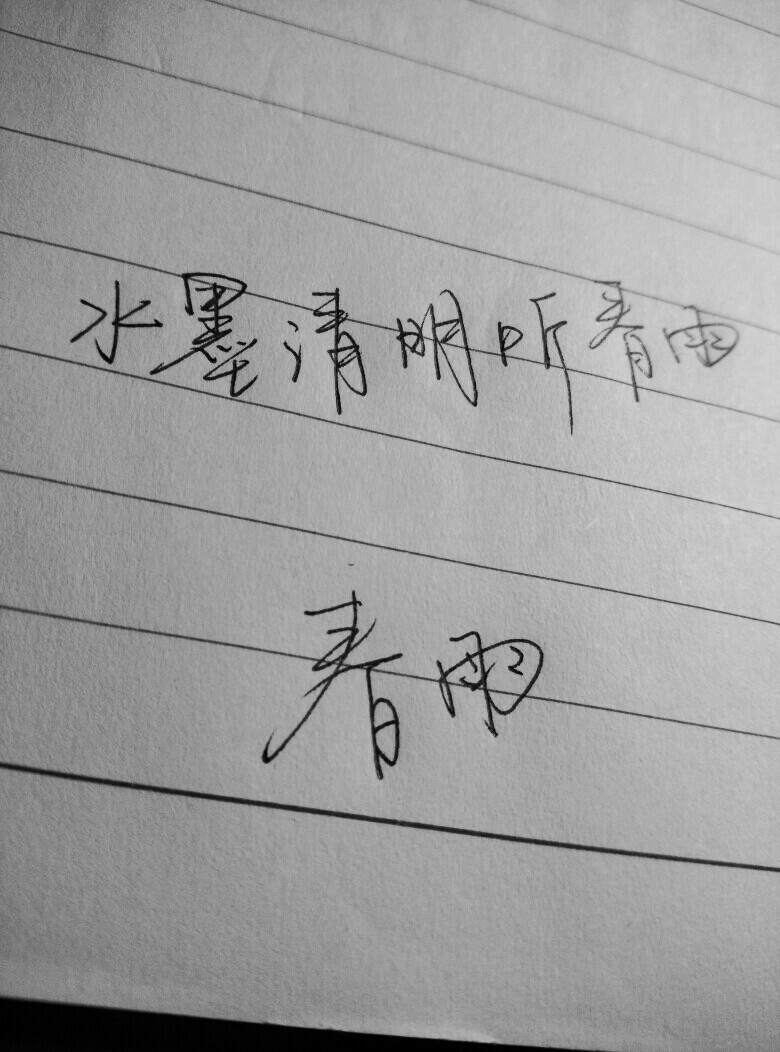 水墨清明听春雨
春雨